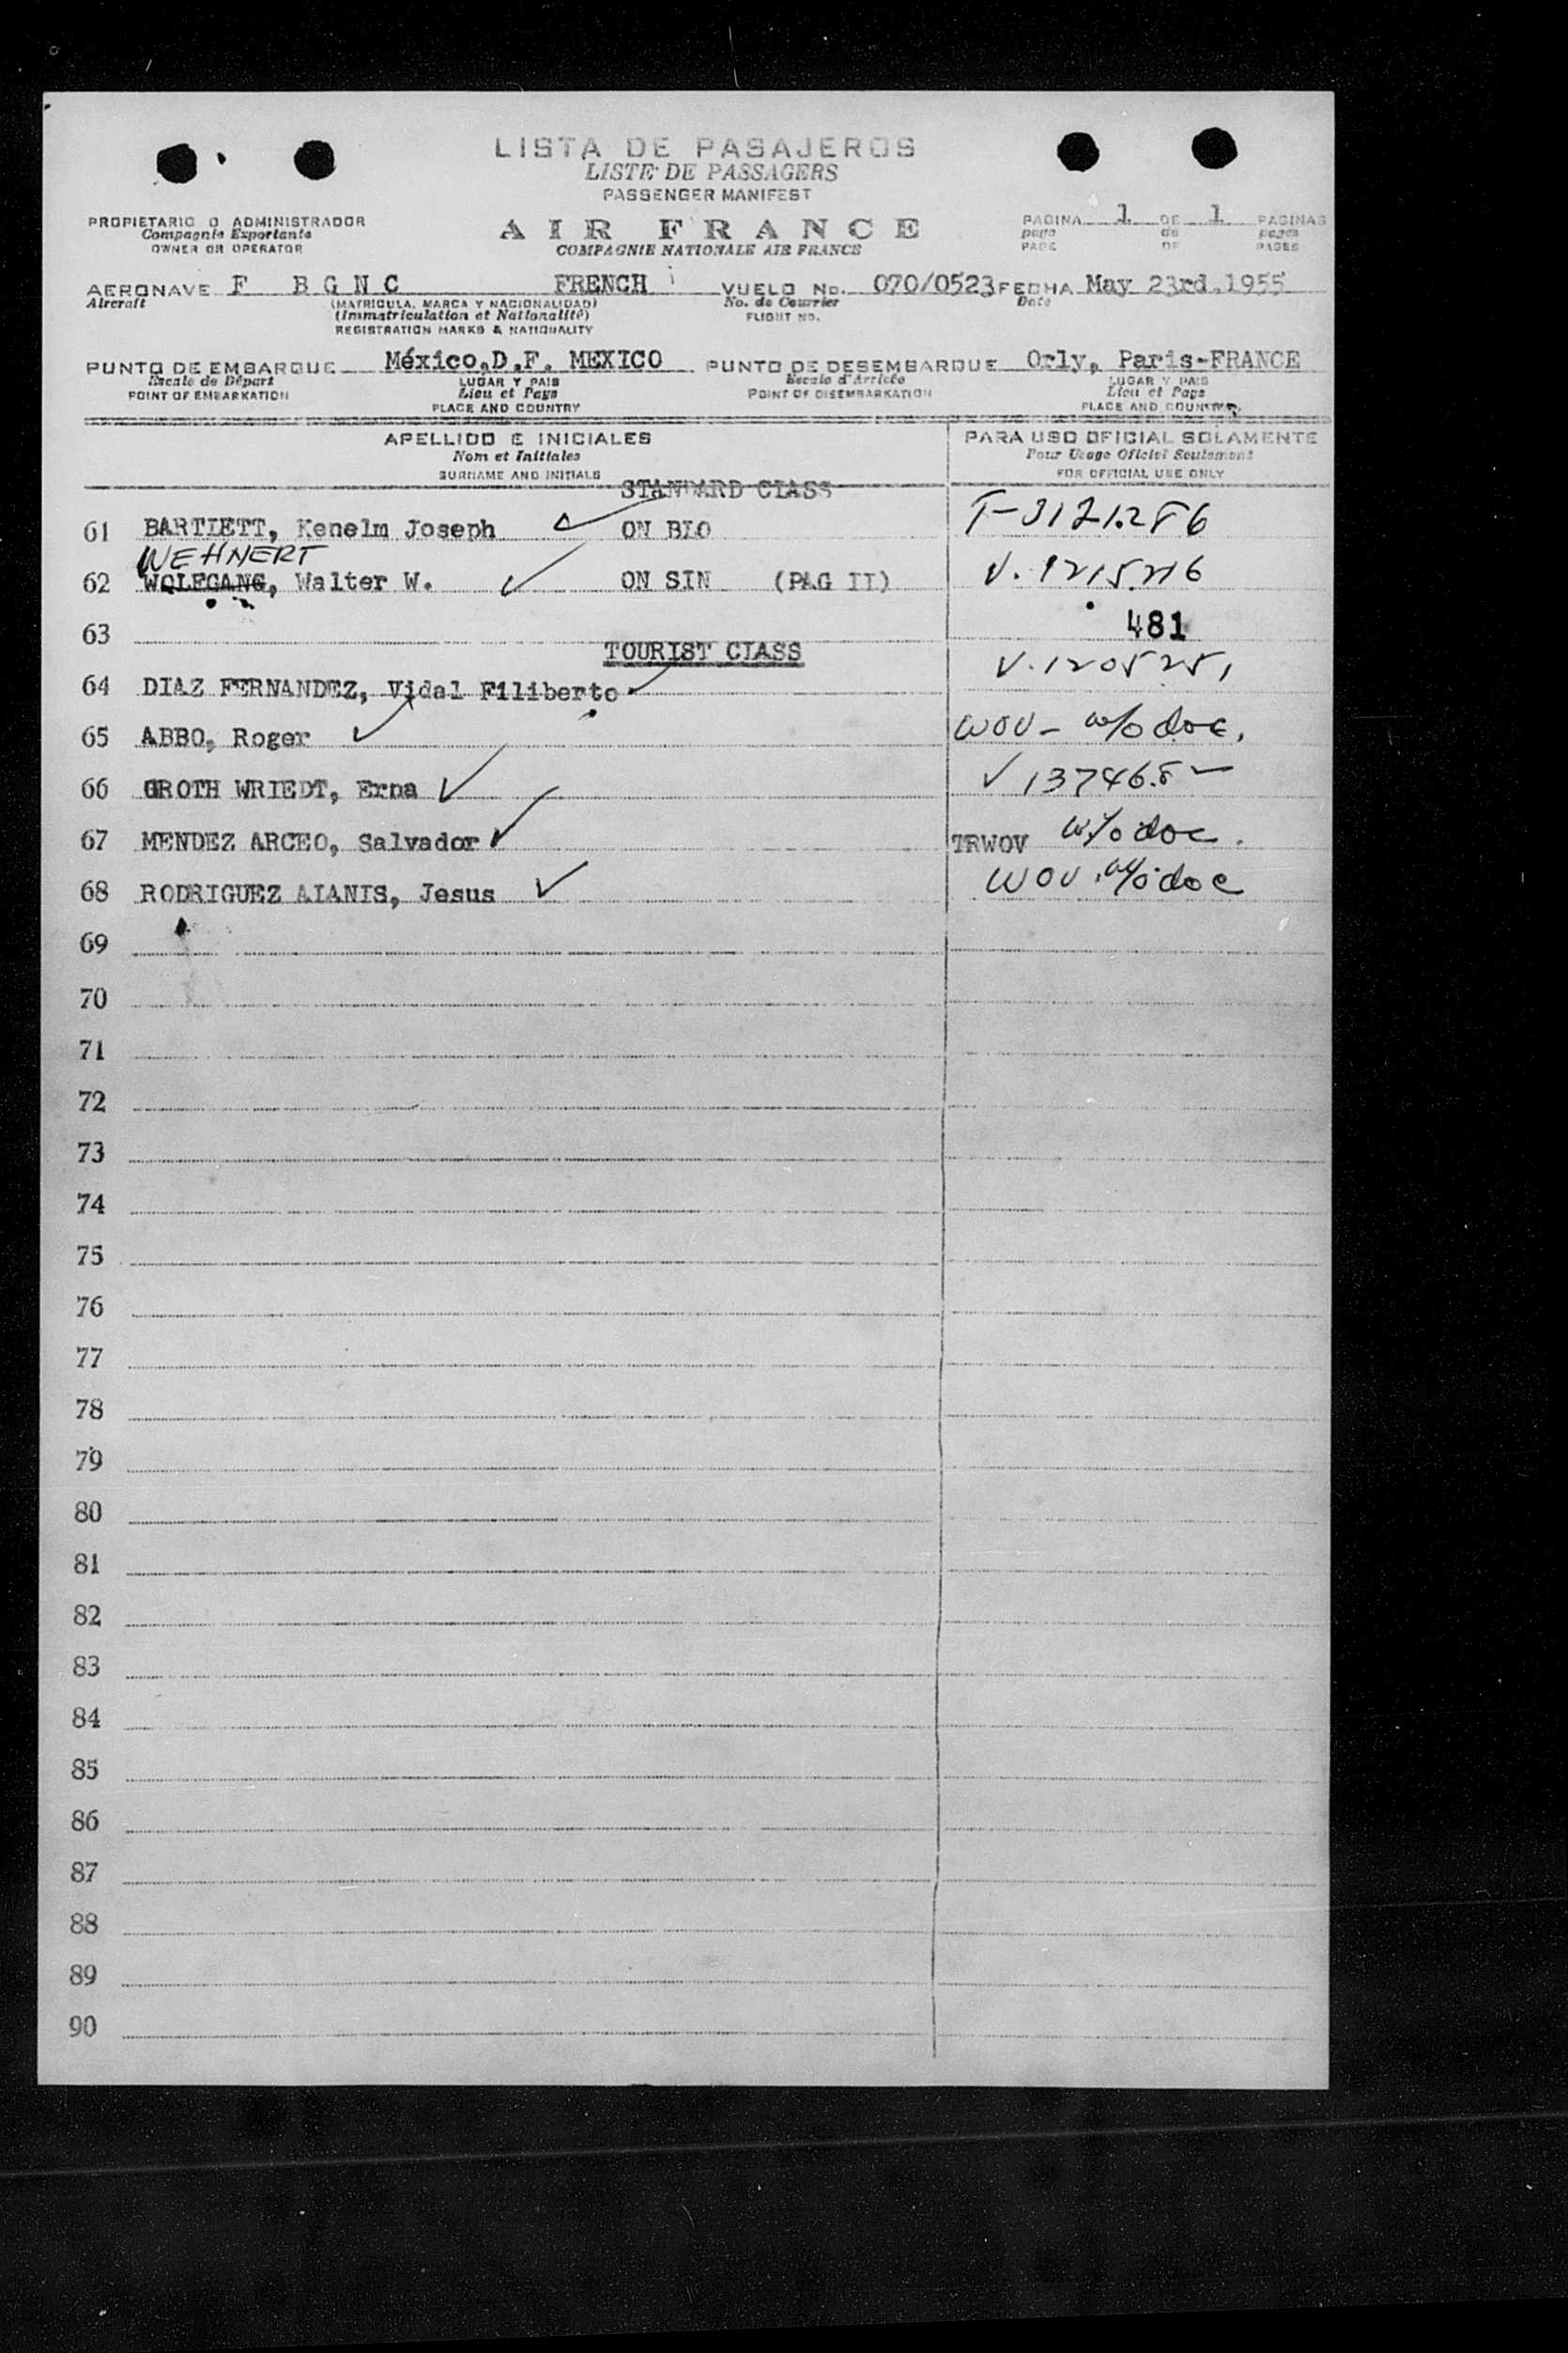 LISTA DE PASAJEROS
LISTE DE PASSAGERS
PASSENGER MANIFEST
PROPIETARIO O ADMINISTRADOR
Compagnie Exportante
OWNER OR OPERATOR
AIR FRANCE
COMPAGNIE NATIONALE AIR FRANCE
PAGINA 1 DE 1 PAGINAS
page de pages
PAGE OF PAGES
AERONAVE F BGNC FRENCH VUELO No. 070/0523 FECHA May 23rd.1955
Aircraft (MATRICULA, MARCA Y NACIONALIDAD) No. de Courrier Date
(Immatriculation et Nationalité) FLIGHT NO.
REGISTRATION MARKS & NATIONALITY
PUNTO DE EMBARQUE México,D.F. MEXICO PUNTO DE DESEMBARQUE Orly, Paris-FRANCE
Escale de Départ LUGAR Y PAIS Escale d'Arrivée LUGAR Y PAIS
POINT OF EMBARKATION Lieu et Pays POINT OF DISEMBARKATION Lieu et Pays
PLACE AND COUNTRY PLACE AND COUNTRY
APELLIDO E INICIALES PARA USO OFICIAL SOLAMENTE
Nom et Initiales Pour Usage Officiel Seulement
SURNAME AND INITIALS FOR OFFICIAL USE ONLY
STANDARD CLASS
61 BARTLETT, Kenelm Joseph ✓ ON BLO T-3121286
WEHNERT
62 WOLFGANG, Walter W. ✓ ON SIN (PAG II) V.1215216
63 481
TOURIST CLASS
64 DIAZ FERNANDEZ, Vidal Filiberto ✓ V.1205251
65 ABBO, Roger ✓ WOV- w/o doc.
66 GROTH WRIEDT, Erna ✓ V
67 MENDEZ ARCEO, Salvador ✓ TRWOV w/o doc.
68 RODRIGUEZ ALANIS, Jesus ✓ WOV. w/o doc
69
70
71
72
73
74
75
76
77
78
79
80
81
82
83
84
85
86
87
88
89
90